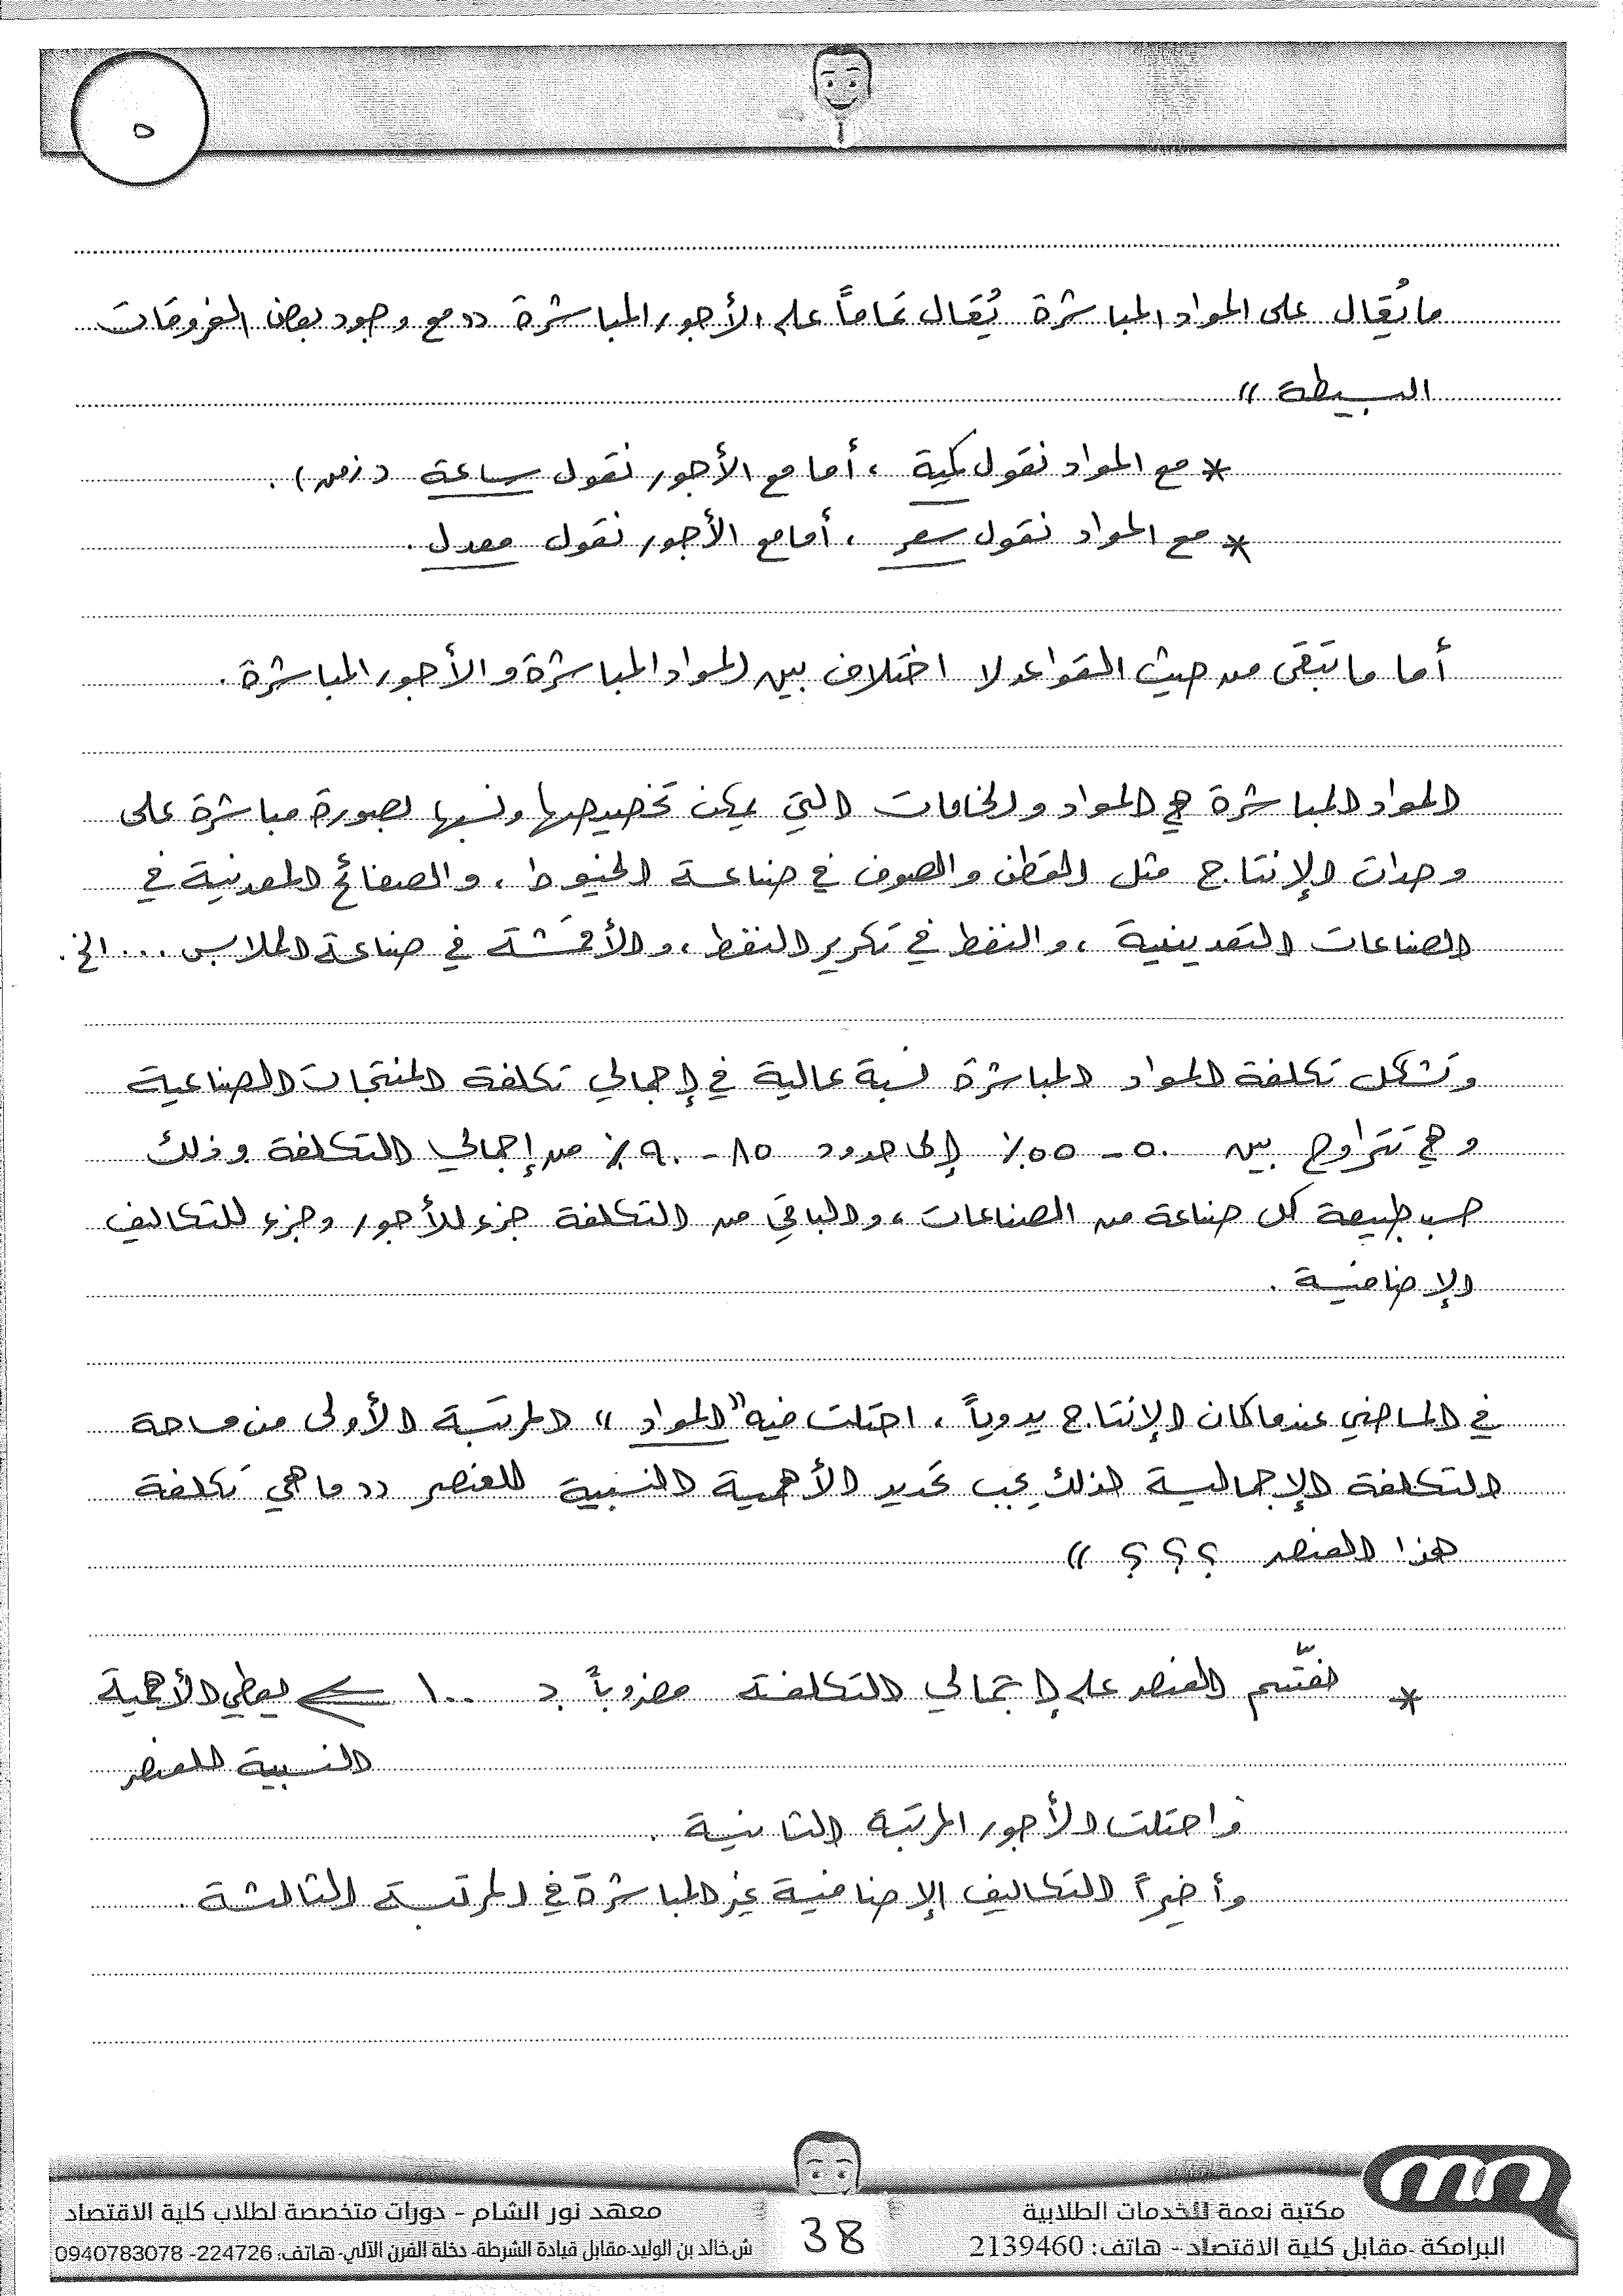 ٥
ما يُقال على المواد المباشرة يُقال تماماً على الأجور المباشرة ((مع وجود بعض الفروقات
البسيطة))
* مع المواد نقول كمية ، أما مع الأجور نقول ساعة (زمن) .
* مع المواد نقول سعر ، أما مع الأجور نقول معدل .
أما ما تبقى من حيث القواعد لا اختلاف بين المواد المباشرة و الأجور المباشرة .
المواد المباشرة هي المواد والخامات التي يمكن تخصيصها ونسبها بصورة مباشرة على
وحدات الإنتاج مثل القطن والصوف في صناعة الخيوط ، والصفائح المعدنية في
الصناعات التعدينية ، والنفط في تكرير النفط ، والأقمشة في صناعة الملابس ... الخ .
وتشكل تكلفة المواد المباشرة نسبة عالية في إجمالي تكلفة المنتجات الصناعية
وهي تتراوح بين ٥٠ - ٥٥٪ إلى حدود ٨٥ - ٩٠٪ من إجمالي التكلفة وذلك
حسب طبيعة كل صناعة من الصناعات ، والباقي من التكلفة جزء للأجور وجزء للتكاليف
الإضافية .
في الماضي عندما كان الإنتاج يدوياً ، احتلت فيه "المواد" المرتبة الأولى من مساحة
التكلفة الإجمالية لذلك يجب تحديد الأهمية النسبية للعنصر ((ما هي تكلفة
هذا العنصر ؟؟؟))
* نقسّم العنصر على إجمالي التكلفة مضروباً بـ ١٠٠ ⇐ يعطي الأهمية
النسبية للعنصر
واحتلت الأجور المرتبة الثانية .
وأخيراً التكاليف الإضافية غير المباشرة في المرتبة الثالثة .
مكتبة نعمة للخدمات الطلابية
البرامكة - مقابل كلية الاقتصاد - هاتف: 2139460
38
معهد نور الشام - دورات متخصصة لطلاب كلية الاقتصاد
ش.خالد بن الوليد-مقابل قيادة الشرطة- دخلة الفرن الآلي- هاتف: 224726- 0940783078